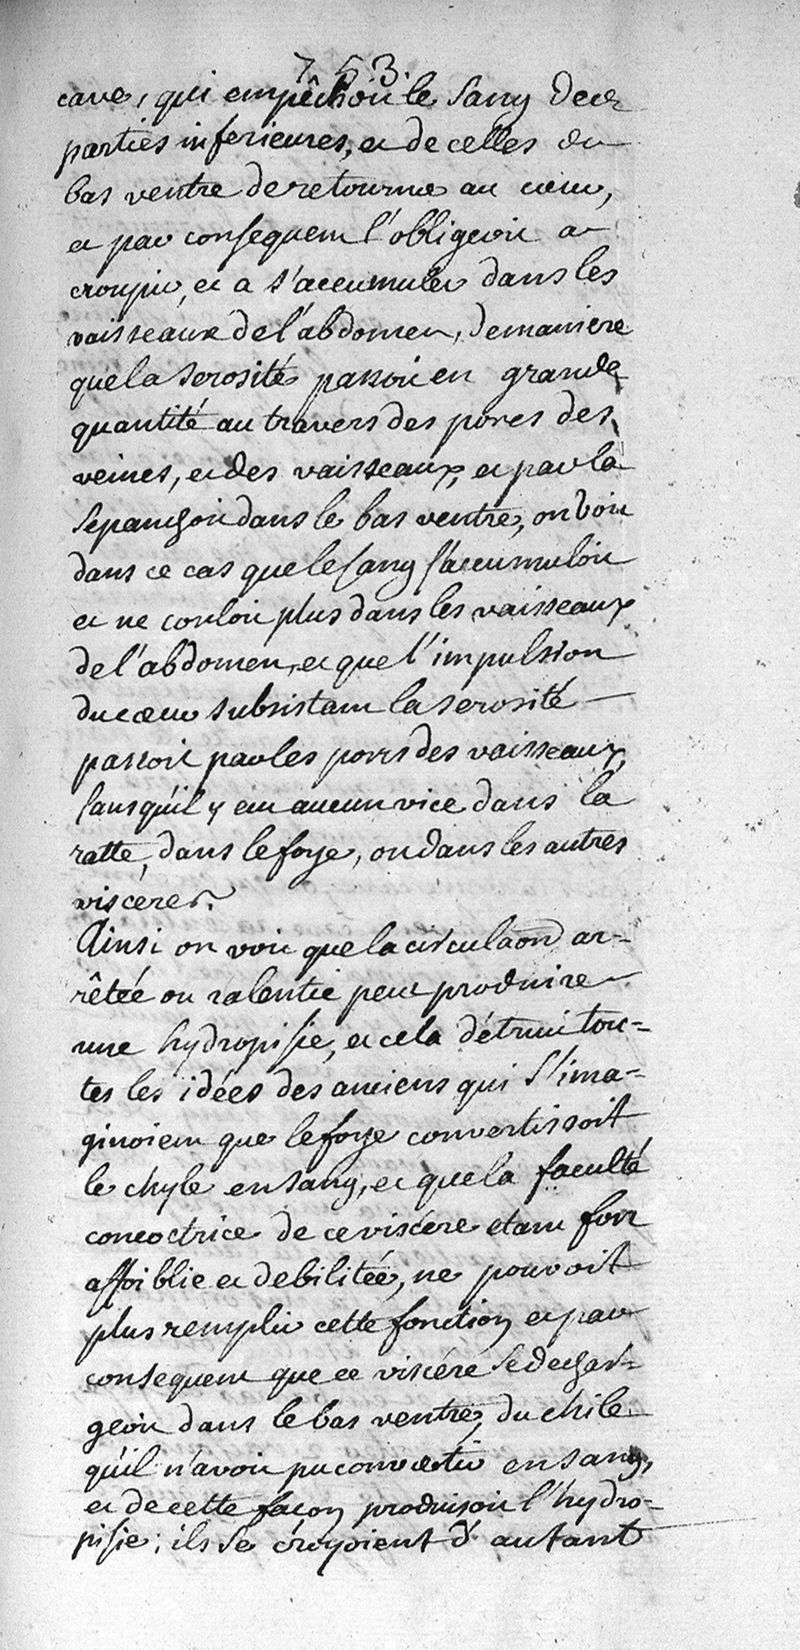 753.
cave, qui empêchoit le sang des
parties inferieures, et de celles du
bas ventre de retourner au cœur,
et par consequent l'obligeoit a
croupir, et a s'accumuler dans les
vaisseaux de l'abdomen, de maniere
que la serosité passoit en grande
quantité au travers des pores des
veines, et des vaisseaux, et par la
s'epanchoit dans le bas ventre, on voit
dans ce cas que le sang s'accumuloit
et ne couloit plus dans les vaisseaux
de l'abdomen, et que l'impulsion
du cœur subsistant la serosité
passoit par les pores des vaisseaux,
sans qu'il y eut aucun vice dans la
ratte, dans le foye, ou dans les autres
viscéres.
Ainsi on voit que la circulaon ar-
rêtée ou ralentie peut produire
une hydropisie, et cela détruit tou=
tes les idées des anciens qui s'ima=
ginoient que le foye convertissoit
le chyle en sang, et que la faculté
concoctrice de ce viscére etant fort
affoiblie et debilitée, ne pouvoit
plus remplir cette fonction et par
consequent que ce viscére se dechar=
geoit dans le bas ventre, du chile
qu'il n'avoit pu convertir en sang,
et de cette façon produisoit l'hydro-
pisie; ils se croyoient d'autant